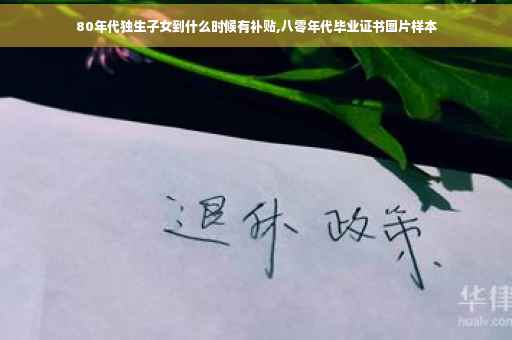 80年代独生子女到什么时候有补贴,八零年代毕业证书图片样本
退休 政策
华律
hualv.com